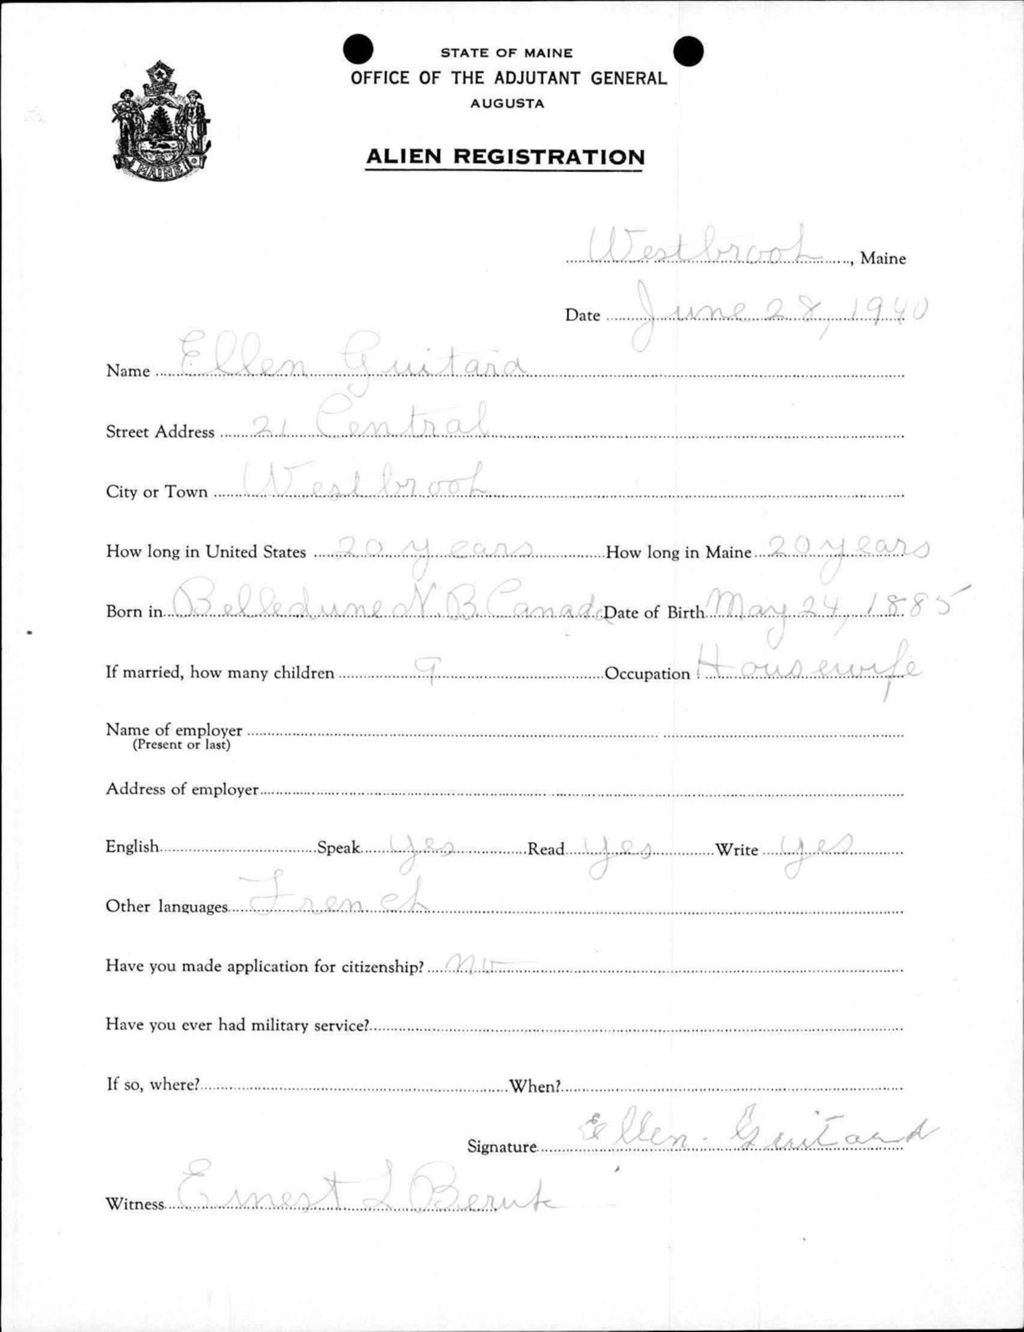 STATE OF MAINE
OFFICE OF THE ADJUTANT GENERAL
AUGUSTA
ALIEN REGISTRATION
MAINE
Westbrook, Maine
Date June 28, 1940
Name Ellen Guitard
Street Address 21 Central
City or Town Westbrook
How long in United States 20 years How long in Maine 20 years
Born in Belledune N.B Canada Date of Birth May 24, 1885
If married, how many children 9 Occupation Housewife
Name of employer
(Present or last)
Address of employer
English Speak yes Read yes Write yes
Other languages French
Have you made application for citizenship? no
Have you ever had military service?
If so, where? When?
Signature Ellen Guitard
Witness Ernest L